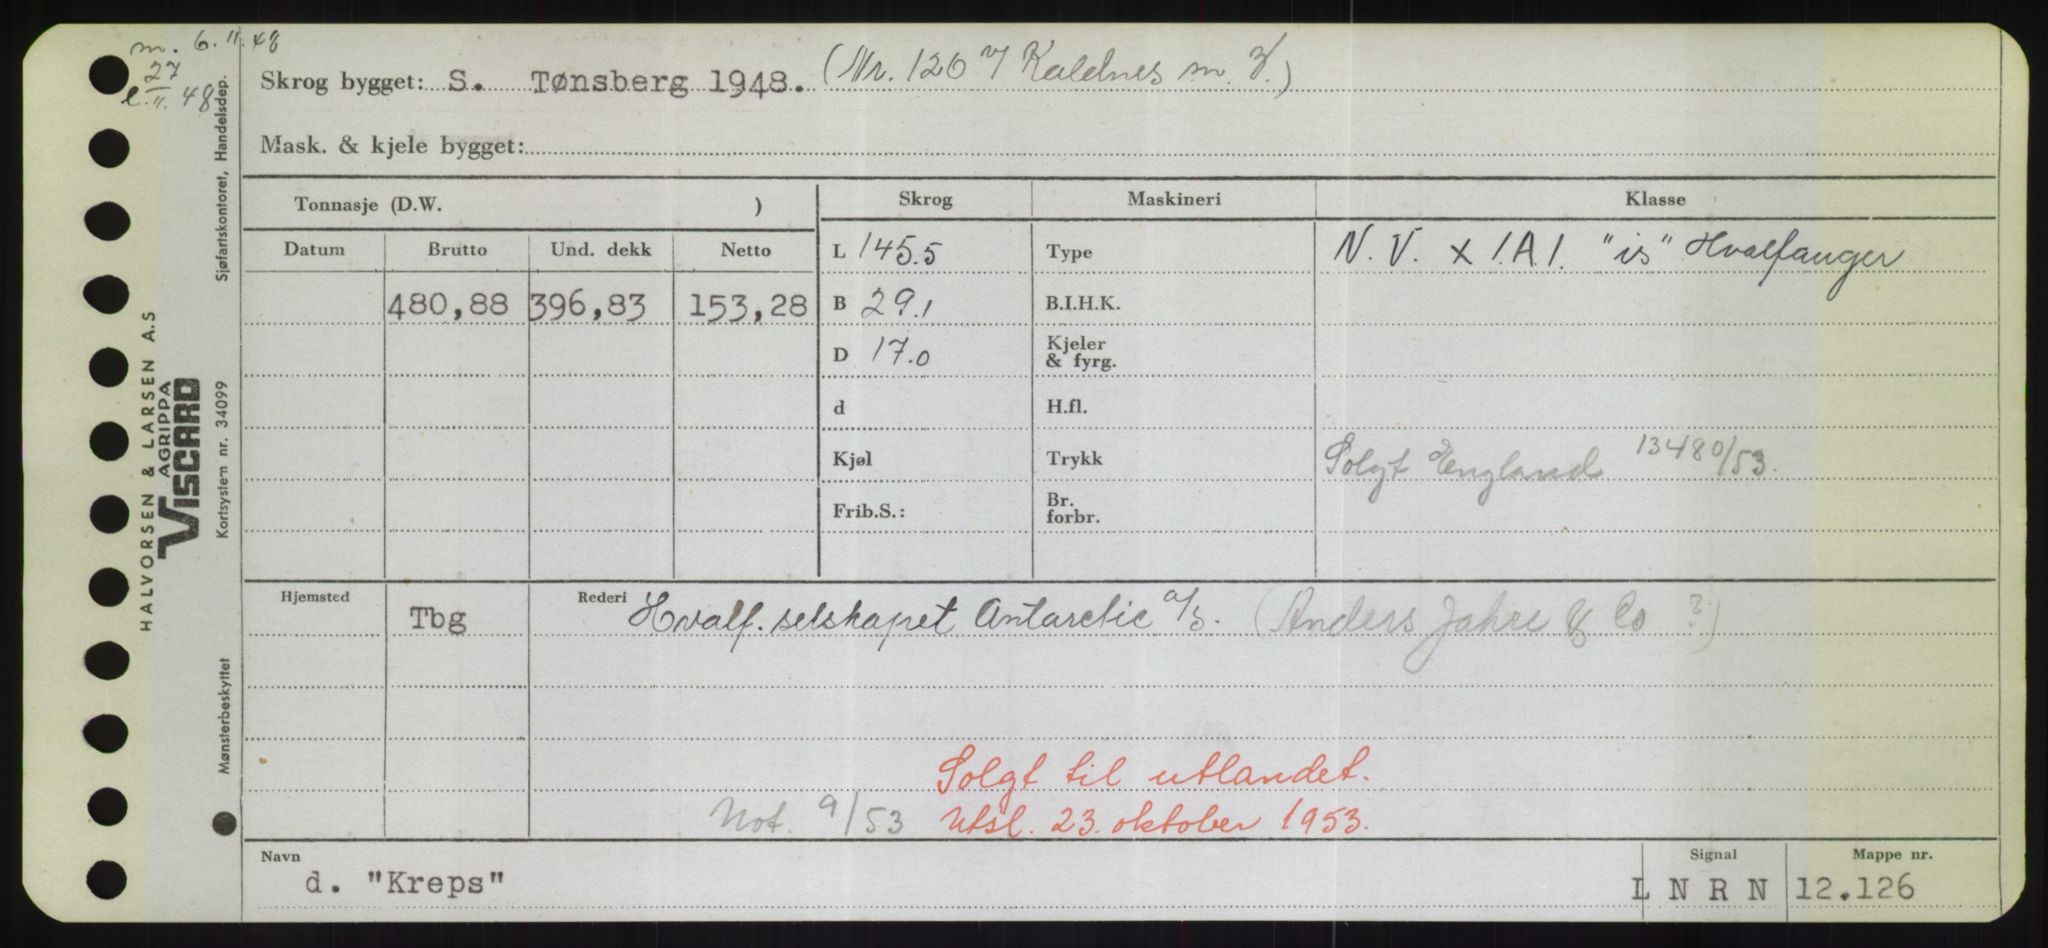 m. 6.11.48
27
l. 11. 48
Skrog bygget: S. Tønsberg 1948. (Nr. 126 Kaldnes m. V.)
Mask. & kjele bygget:
Tonnasje (D.W. )
Skrog
Maskineri
Klasse
Datum
Brutto
Und. dekk
Netto
L 145.5
Type
N. V. x 1.A.1. "is" Hvalfanger
480,88
396,83
153,28
B 29.1
B.I.H.K.
D 17.0
Kjeler
& fyrg.
d
H.fl.
Kjøl
Trykk
Solgt England 13480/53.
Frib.S.:
Br.
forbr.
Hjemsted
Tbg
Rederi Hvalf.selskapet Antarctic a/s. (Anders Jahre & Co ?)
Solgt til utlandet.
Not. 9/53
Utsl. 23. oktober 1953.
Navn
d. "Kreps"
Signal
L N R N
Mappe nr.
12.126
HALVORSEN & LARSEN A.S
AGRIPPA
VISCARD
Sjøfartskontoret, Handelsdep.
Kortsystem nr. 34099
Mønsterbeskyttet